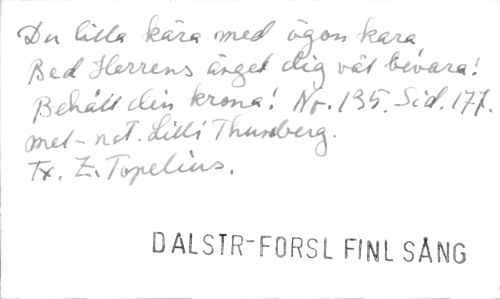 Du lilla kära med ögon kara
Bed Herrens ängel dig väl bevara!
Behåll din krona! No. 135. Sid. 177.
mel-not. Lilli Thuneberg.
Tx. Z. Topelius.
DALSTR-FORSL FINL SÅNG